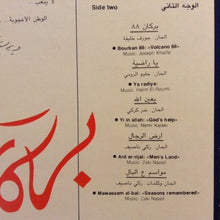 لا يذهب ..
الوطن الاعجوبة
Side two
الوجه الثاني
بركان ٨٨
الحان: جوزف خليفة
● Bourkan 88: «Volcano 88»
Music: Joseph Khalifé
يا راضية
الحان: حليم الرومي
● Ya radiya:
Music: Halim El-Roumi
يعين الله
الحان: نمر كركي
● Yi in allah: «God's help»
Music: Nemr Karaki
ارض الرجال
الحان: زكي ناصيف
● Ard ar-rijal: «Men's Land»
Music: Zaki Nassif
مواسم ع البال
الحان وكلمات: زكي ناصيف
● Mawassem al-bal: «Seasons remembered»
Music: Zaki Nassif